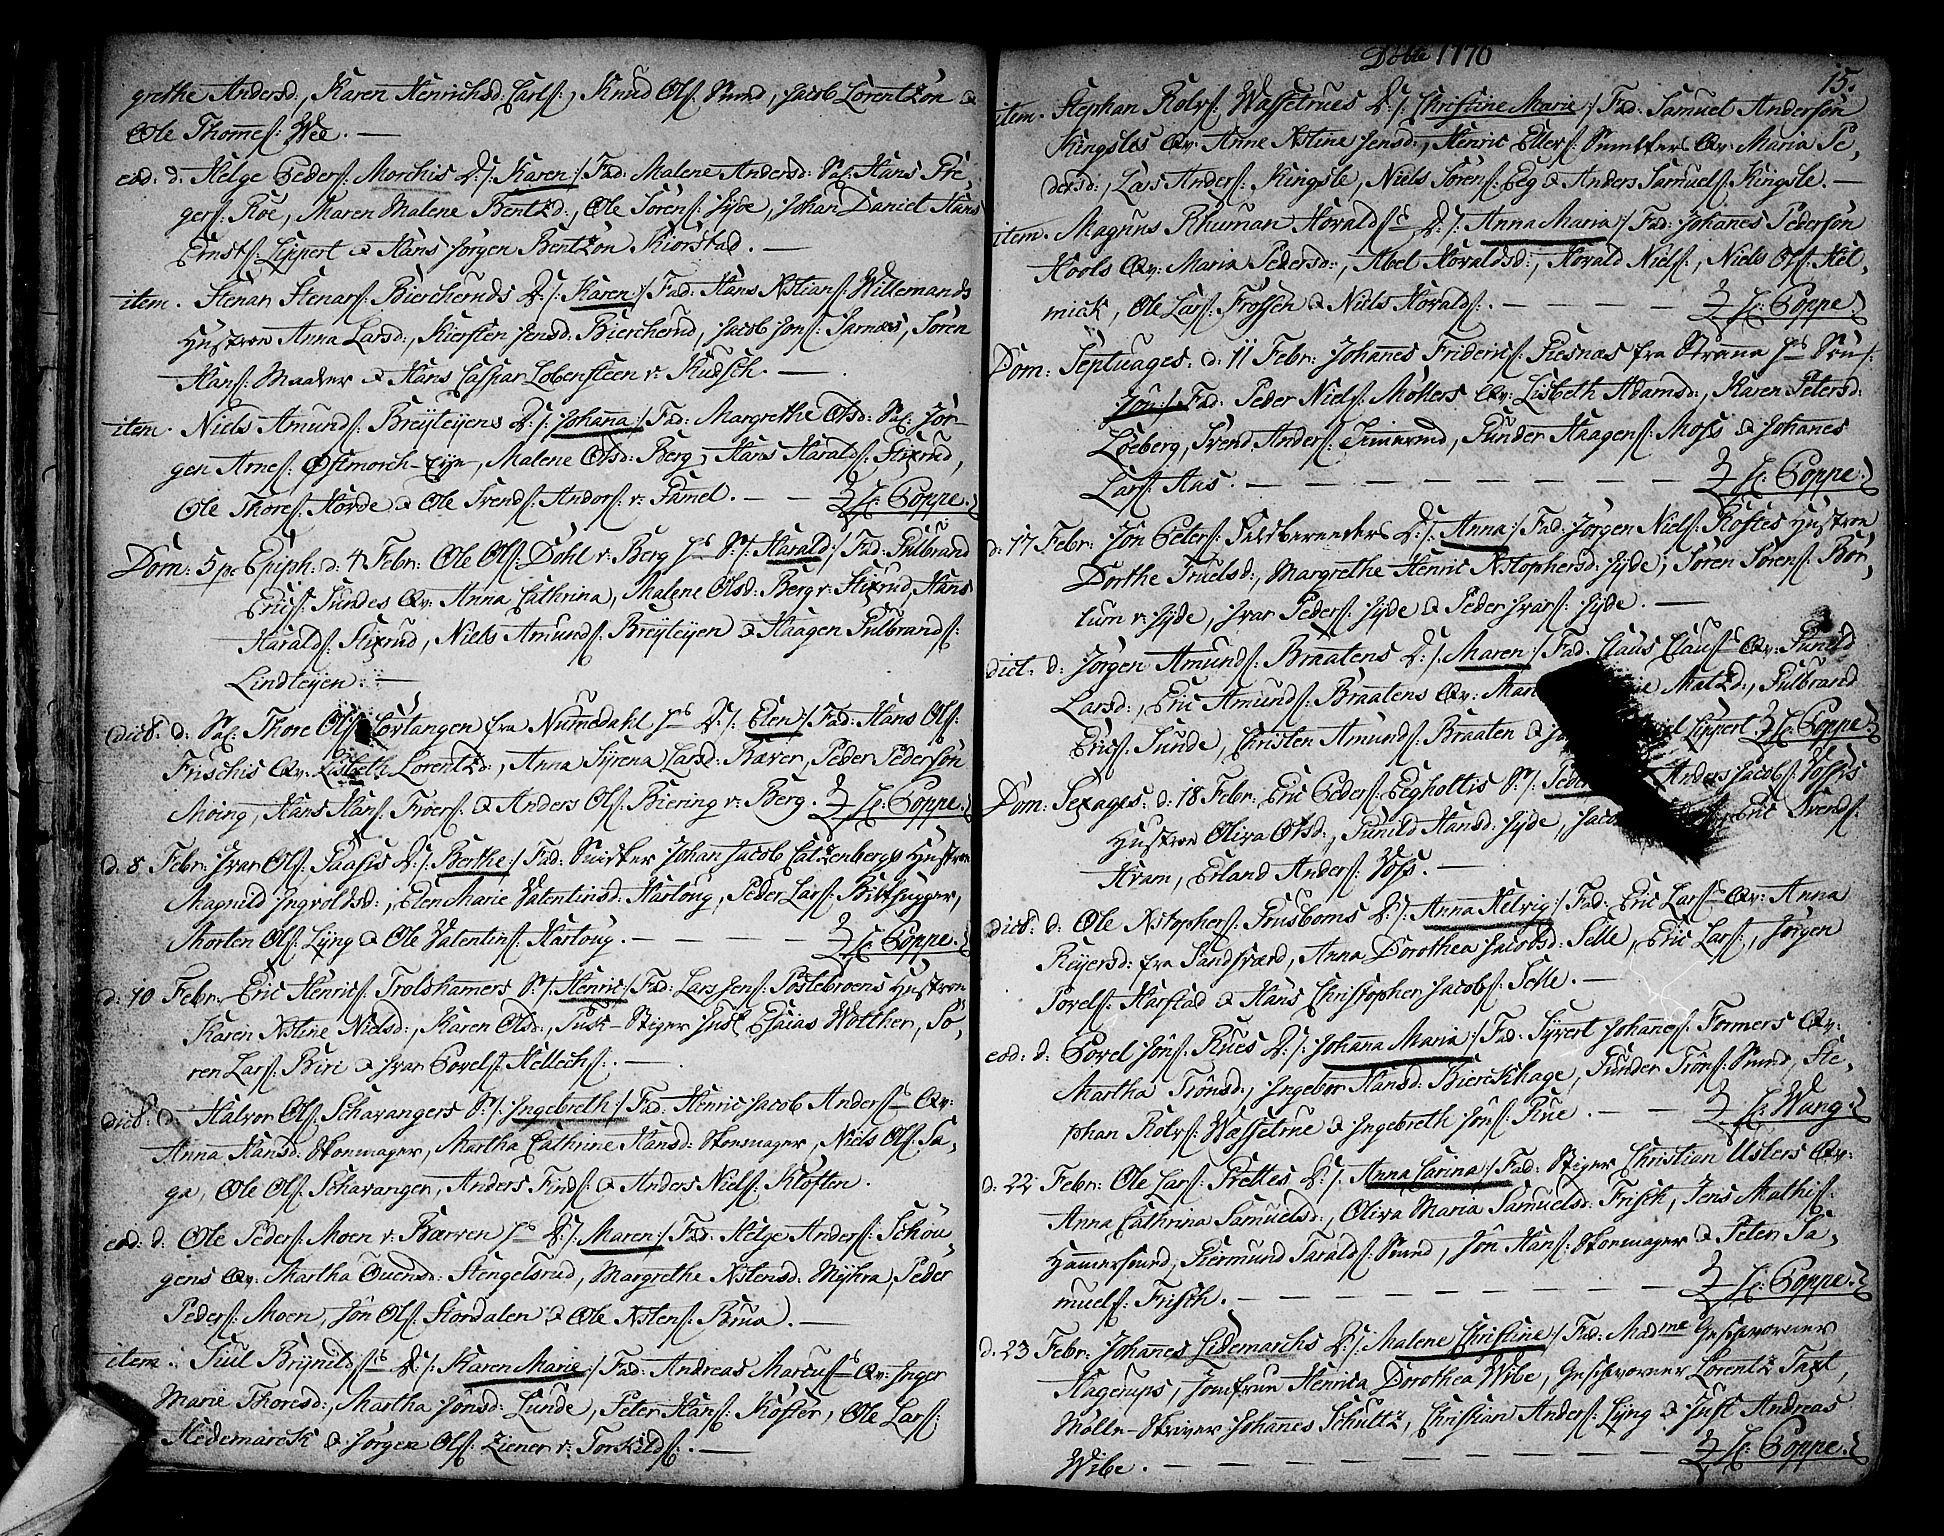 grethe Andersd:, Karen Henrichsd: Carls:, Knud Ols: Sund, Jacob Lorentzon &
Ole Thomes: Wee. —
eod: d: Helge Peders: Morchis D: /: Karen :/ Fad: Malene Andersd: Sal: Hans Gre-
gers: Roe, Maren Malene Bentzd:, Ole Sørens: Jyde, Johan Daniel Hans
Ernsts: Lippert & Hans Jørgen Bentzon Kiorstad. —
item. Stenar Stenars: Biercheruds D: /: Karen :/ Fad: Hans Xstians: Willemands
Hustroe Anna Larsd:, Kiersten Jensd: Biercherud, Jacob Jons: Jarnæs, Søren
Hans: Maaler & Hans Caspar Lobensteen v: Kudsch. —
item. Niels Amunds: Breyleyens D: /: Johana :/ Fad: Margrethe Olsd: Sal: Jør-
gen Arnes: Ostmorch-Eye, Malene Olsd: Berg, Hans Haralds: Stixrud,
Ole Thores: Horde & Ole Svends: Andors: v: Gamel. — — H: Poppe.
Dom: 5 p: Epiph: d: 4 Febr: Ole Ols: Dohl v: Berg S: /: Harald :/ Fad: Gulbrand
Erics: Sundes Qv: Anna Cathrina, Malene Olsd: Berg v: Stixrud, Hans
Haralds: Stixrud, Niels Amunds: Breyleyen & Haagen Gulbrands:
Lindleyen. —
dict: d: Sal: Thore Ols: Corlangen fra Numedahl D: /: Elen :/ Fad: Hans Ols:
Frischis Qv: Lisbeth Lorentzd:, Anna Syrena Larsd: Barer, Peder Pedersøn
Moing, Hans Hans: Froers: & Anders Ols: Biering v: Berg. H: Poppe.
d: 8 Febr: Ivar Ols: Saasis D: /: Berthe :/ Fad: Snidker Johan Jacob Catzenbergs Hustroe
Magnild Ingvoldsd:, Elen Marie Valentinsd: Hartoug, Peder Lars: Birkhugger,
Morten Ols: Lyng & Ole Valentins: Hartoug. — — — H: Poppe.
d: 10 Febr: Eric Henrics: Trolshamers S: /: Henric :/ Fad: Lars Jens: Sostebroens Hustroe
Karen Xstine Nielsd:, Karen Olsd:, Puk-Stiger Just Esaias Wolther, Sø-
ren Lars: Biri & Ivar Povels: Hellechs: —
dict: d: Halvor Ols: Schavangers S: /: Ingebreth :/ Fad: Henric Jacob Anders: Qv:
Anna Hansd: Skomager, Martha Cathrine Hansd: Skomager, Niels Ols: Sa-
ga, Ole Ols: Schavangen, Anders Finds: & Anders Niels: Kloften.
eod: d: Ole Peders: Moen v: Barren D: /: Maren :/ Fad: Helge Anders: Schou-
gens Qv: Martha Ouensd: Stengelsrud, Margrethe Xstensd: Myhra, Peder
Peders: Moen, Jon Ols: Stordalen & Ole Xstens: Brua. —
item. Juul Brynilds: D: /: Karen Marie :/ Fad: Andreas Marcus: Qv: Inger
Marie Thoresd:, Martha Jonsd: Lunde, Peter Hans: Koster, Ole Lars:
Hedemarck & Jørgen Ols: Ziener v: Torkilds: —
Døbte 1770
15.
item. Stephan Rolvs: Wasselrues D: /: Christine Marie :/ Fad: Samuel Andersøn
Kingsles Qv: Anne Xstine Jensd:, Henric Ellers: Smelters Qv: Maria Pe-
dersd:, Lars Anders: Kingsle, Niels Sørens: Eeg & Anders Samuels: Kingsle. —
item. Magnus Rhuman Horalds: D: /: Anna Maria :/ Fad: Johanes Pedersøn
Hools Qv: Maria Pedersd:, Abel Horaldsd:, Horald Niels:, Niels Ols: Hel-
mick, Ole Lars: Frossen & Niels Horalds: — — — H: Poppe.
Dom: Septuages: d: 11 Febr: Johanes Frideric: Giesnæs fra Strømø Søn /:
Jon :/ Fad: Peder Niels: Møllers Qv: Lisbeth Adamsd:, Karen Petersd:
Loeberg, Svend Anders: Trinerud, Gunder Haagens: Moss & Johanes
Lars: Aas. — — — — — H: Poppe.
d: 17 Febr: Jon Peters: Feldberreders D: /: Anna :/ Fad: Jørgen Niels: Kostes Hustroe
Dorthe Truelsd:, Margrethe Henric Xstophersd: Jyde, Søren Sørens: Bor-
lum v: Jyde, Ivar Peders: Jyde & Peder Ivars: Jyde. —
dict: d: Jørgen Amunds: Braatens D: /: Maren :/ Fad: Claus Claus: Qv: Gunild
Larsd:, Eric Amunds: Braatens Qv: Maria Matzd:, Gulbrand
Erics: Sunde, Christen Amunds: Braaten & Lippert H: Poppe.
Dom: Sexages: d: 18 Febr: Eric Peders: Egholtis S: /: Peder Anders Jacobs: Vosses
Hustroe Oliva Olsd:, Gunild Hansd: Jyde, Jacob Eric Svends:
Hvam, Erland Anders: Voss. —
dict: d: Ole Xstophers: Grusboms D: /: Anna Helvig :/ Fad: Eric Lars: Qv: Anna
Reyersd: fra Sandsværd, Anna Dorothea Jacobsd: Selle, Eric Lars:, Jørgen
Povels: Harstad & Hans Christopher Jacobs: Selle. —
eod: d: Povel Jons: Rues D: /: Johana Maria :/ Fad: Syvert Johanes: Formers Qv:
Martha Tronsd:, Ingebor Hansd: Bierckhage, Gunder Trons: Sund, Ste-
phan Rolvs: Wasselrue & Ingebreth Jons: Rue. — — H: Wang.
d: 22 Febr: Ole Lars: Grettes D: /: Anna Carina :/ Fad: Stiger Christian Uslers Qv:
Anna Cathrina Samuelsd:, Oliva Maria Samuelsd: Frisch, Jens Mathis:
Hamersund, Giermund Taralds: Sund, Jon Hans: Skomager & Peter Sa-
muels: Frisch. — — — — — H: Poppe.
d: 23 Febr: Johanes Lidemarchs D: /: Malene Christine :/ Fad: Madme Geschworner
Hagerups, Jomfrue Henrica Dorothea Wibe, Geschworner Lorentz Taxt,
Mølle-Skriver Johanes Schultz, Christian Anders: Lyng & Just Andreas
Wibe. — — — — — H: Poppe.